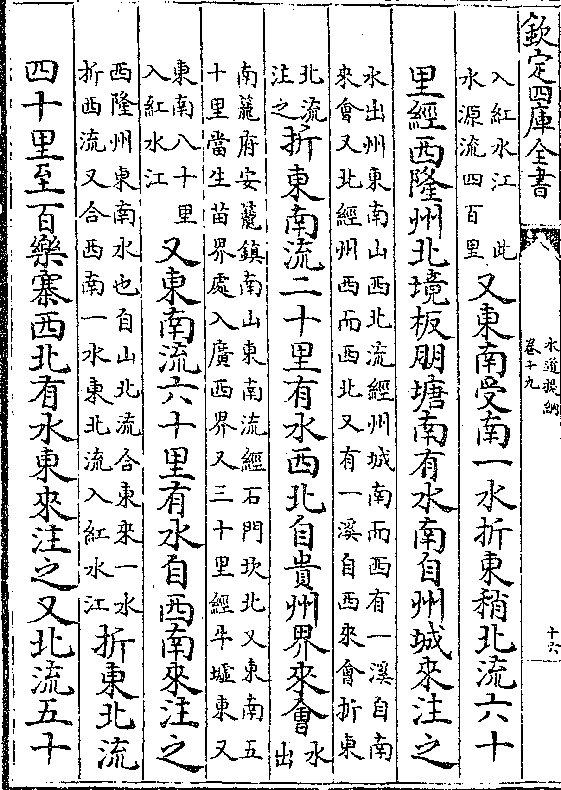 欽定四庫全書
水道提綱
卷十九
十六
入紅水江此
水源流四百里
又東南受南一水折東稍北流六十
里經西隆州北境板朋塘南有水南自州城來注之
水出州東南山西北流經州城南而西有一溪自南
來會又北經州西而西北又有一溪自西來會折東
北流
注之
折東南流二十里有水西北自貴州界來會
水
出
南籠府安籠鎮南山東南流經石門坎北又東南五
十里當生苗界處入廣西界又三十里經平墟東又
東南八十里
入紅水江
又東南流六十里有水自西南來注之
西隆州東南水也自山北流合東來一水
折西流又合西南一水東北流入紅水江
折東北流
四十里至百樂寨西北有水東來注之又北流五十